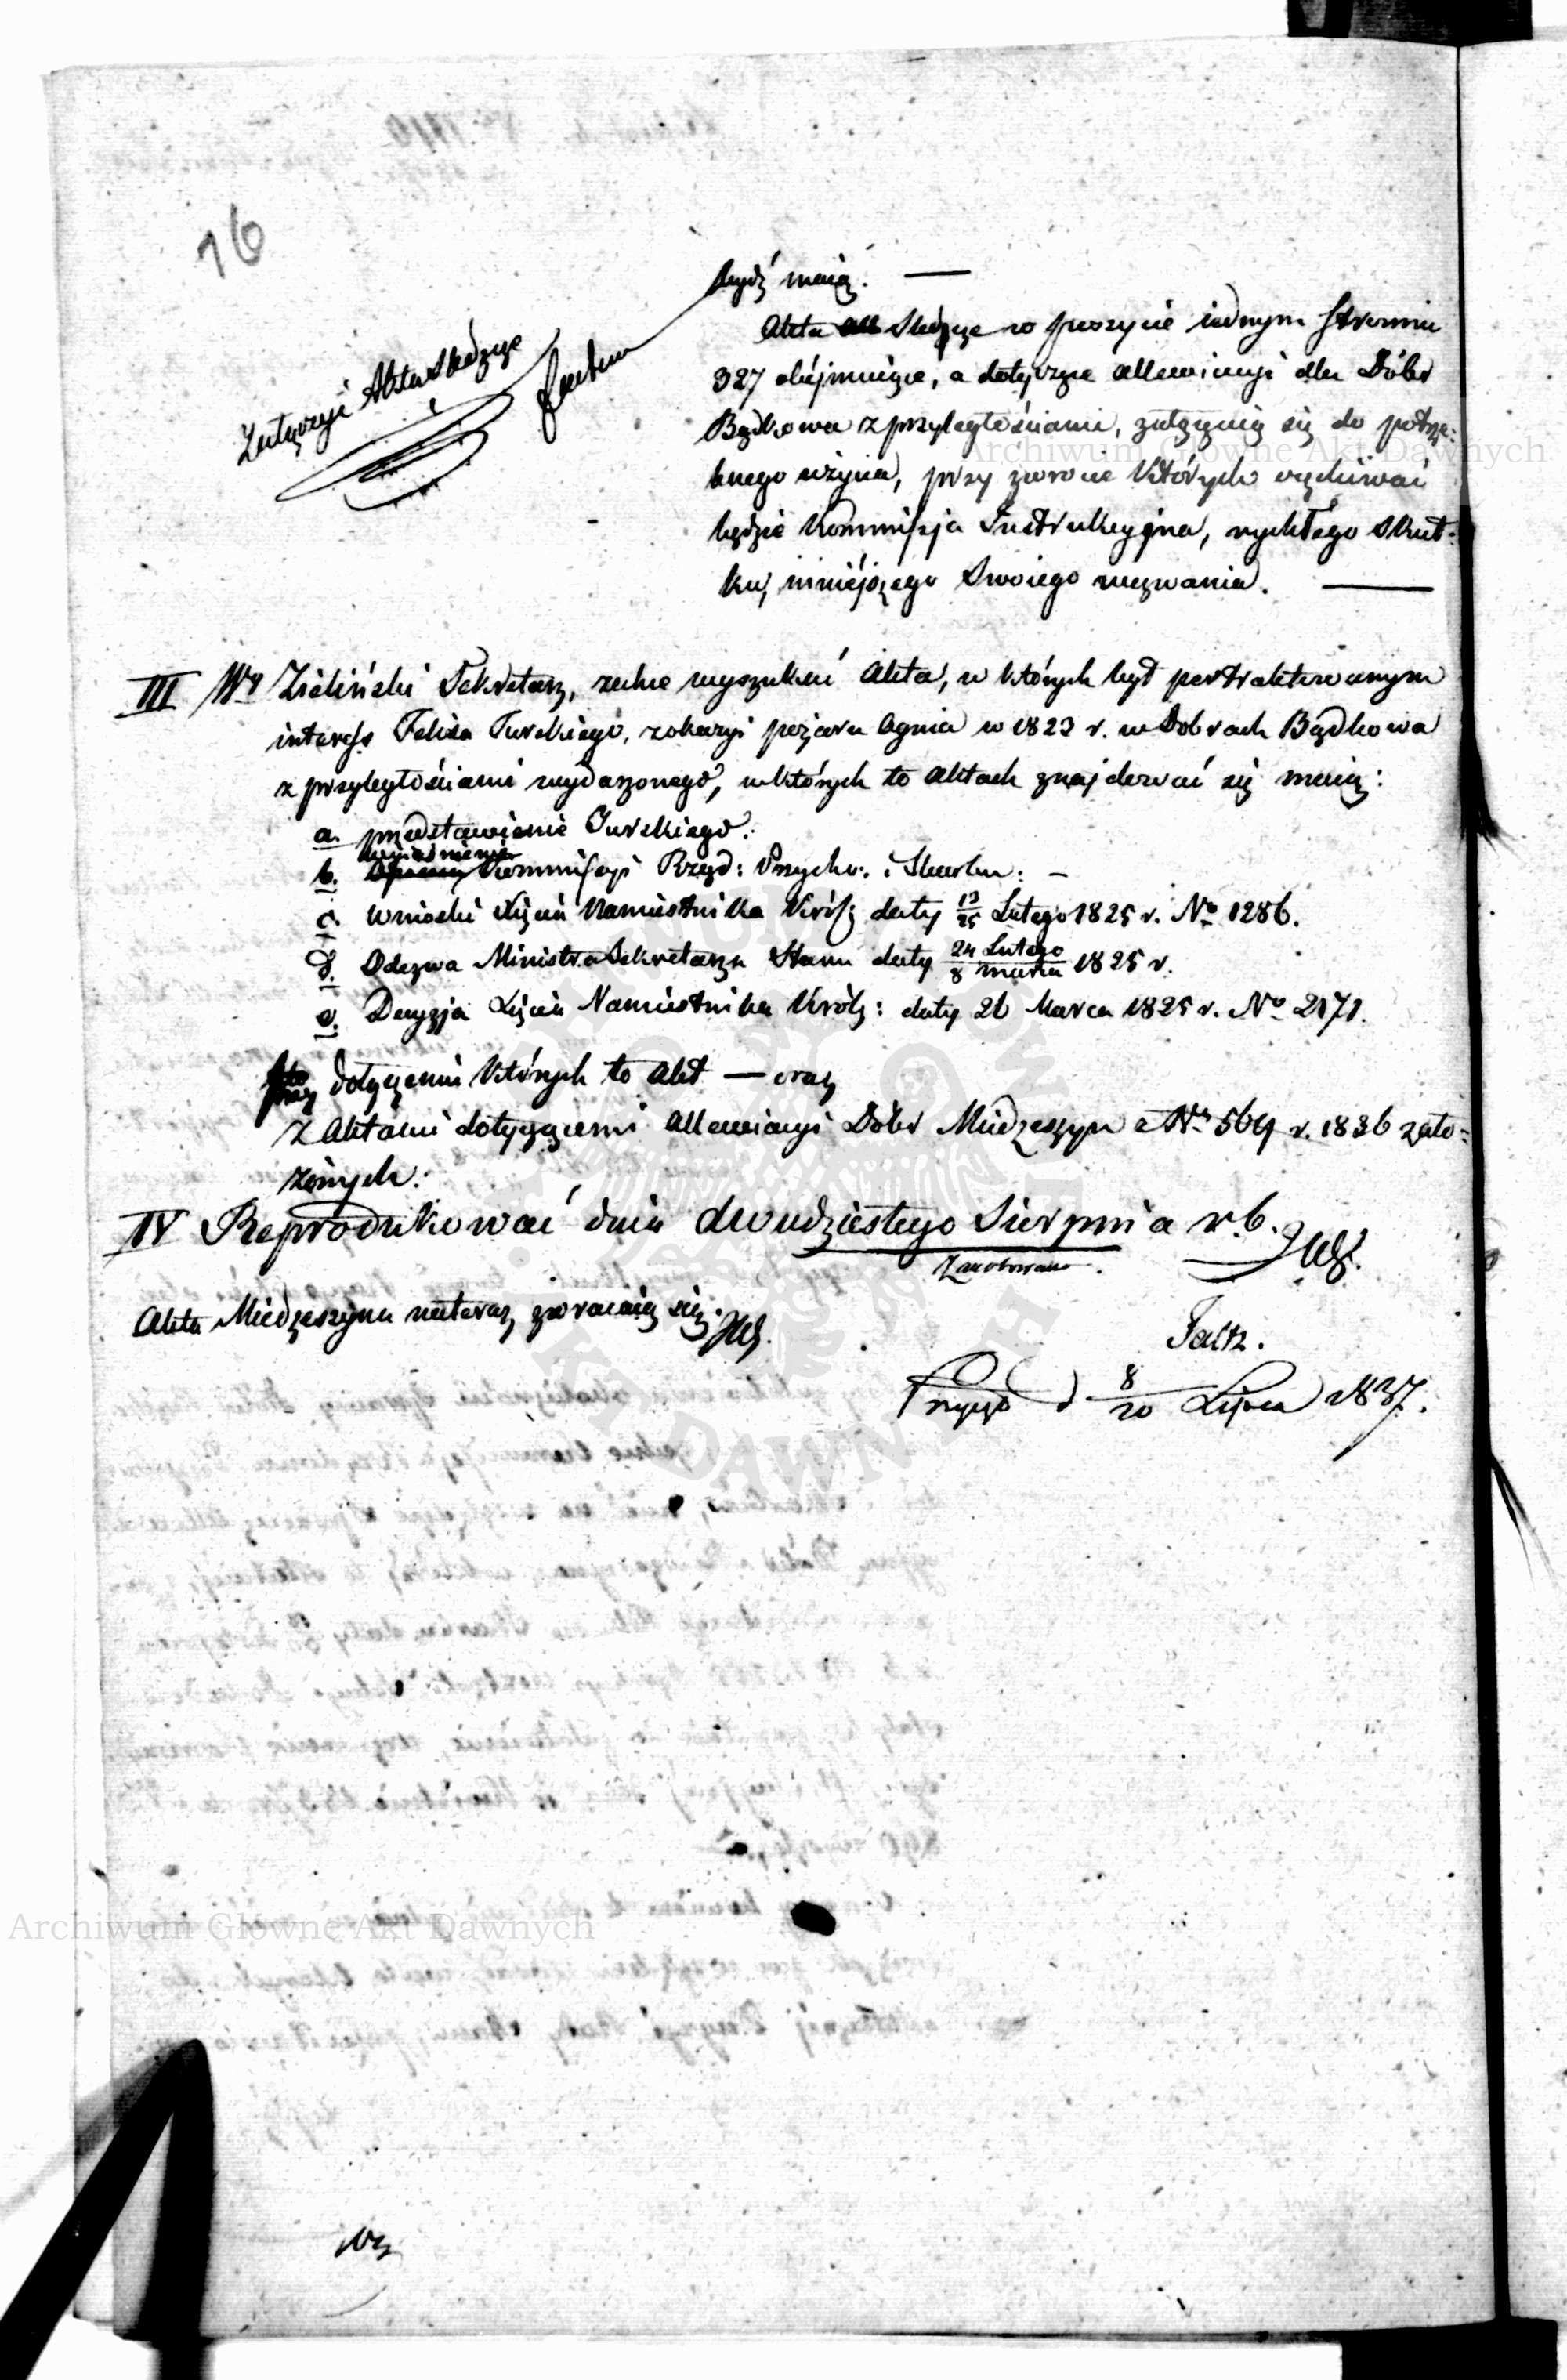 16
bydź maią. —
Załączyć Akta śledzcze
Akta śledcze w poszycie iednym stronnic
327 obéjmuiące, a dotyczące allewiacyi dla Dóbr
Bądkowa z przyległościami, załączaią się do potrze:
bnego użycia, przy zwrocie których oczekiwać
będzie Kommissja Instrukcyjna, rychłego skut:
ku, niniéjszego Swoiego wezwania. —
III Wy Zieliński Sekretarz, zechce wyszukać Akta, w których był pertraktowanym
interess Felixa Turskiego, z okazyi pożaru Ognia w 1823 r. w Dobrach Bądkowa
z przyległościami wydarzonego, w których to Aktach znajdować się maią:
a. przedstawienie Turskiego.
b. wyjaśnienie Kommissyi Rząd: Przycho: i Skarbu: —
c. Wnioski Xięcia Namiestnika Król: daty 13/25 Lutego 1825 r. No 1286.
d. Odezwa Ministra Sekretarza Stanu daty 24 Lutego/8 Marca 1825 r.
e. Decyzja Xięcia Namiestnika Król: daty 26 Marca 1825 r. No 2171.
dołączeniu których to Akt — oraz
z Aktami dotyczącemi allewiacyi Dóbr Miedzeszyn e No 564 r. 1836 zało:
żonych.
IV Reprodukować dnia dwudziestego Sierpnia r. b.
Zanotowano.
Akta Miedzeszyna nateraz zwracaią się.
Faltz.
d 8/20 Lipca 1837.
Archiwum Główne Akt Dawnych
Archiwum Główne Akt Dawnych